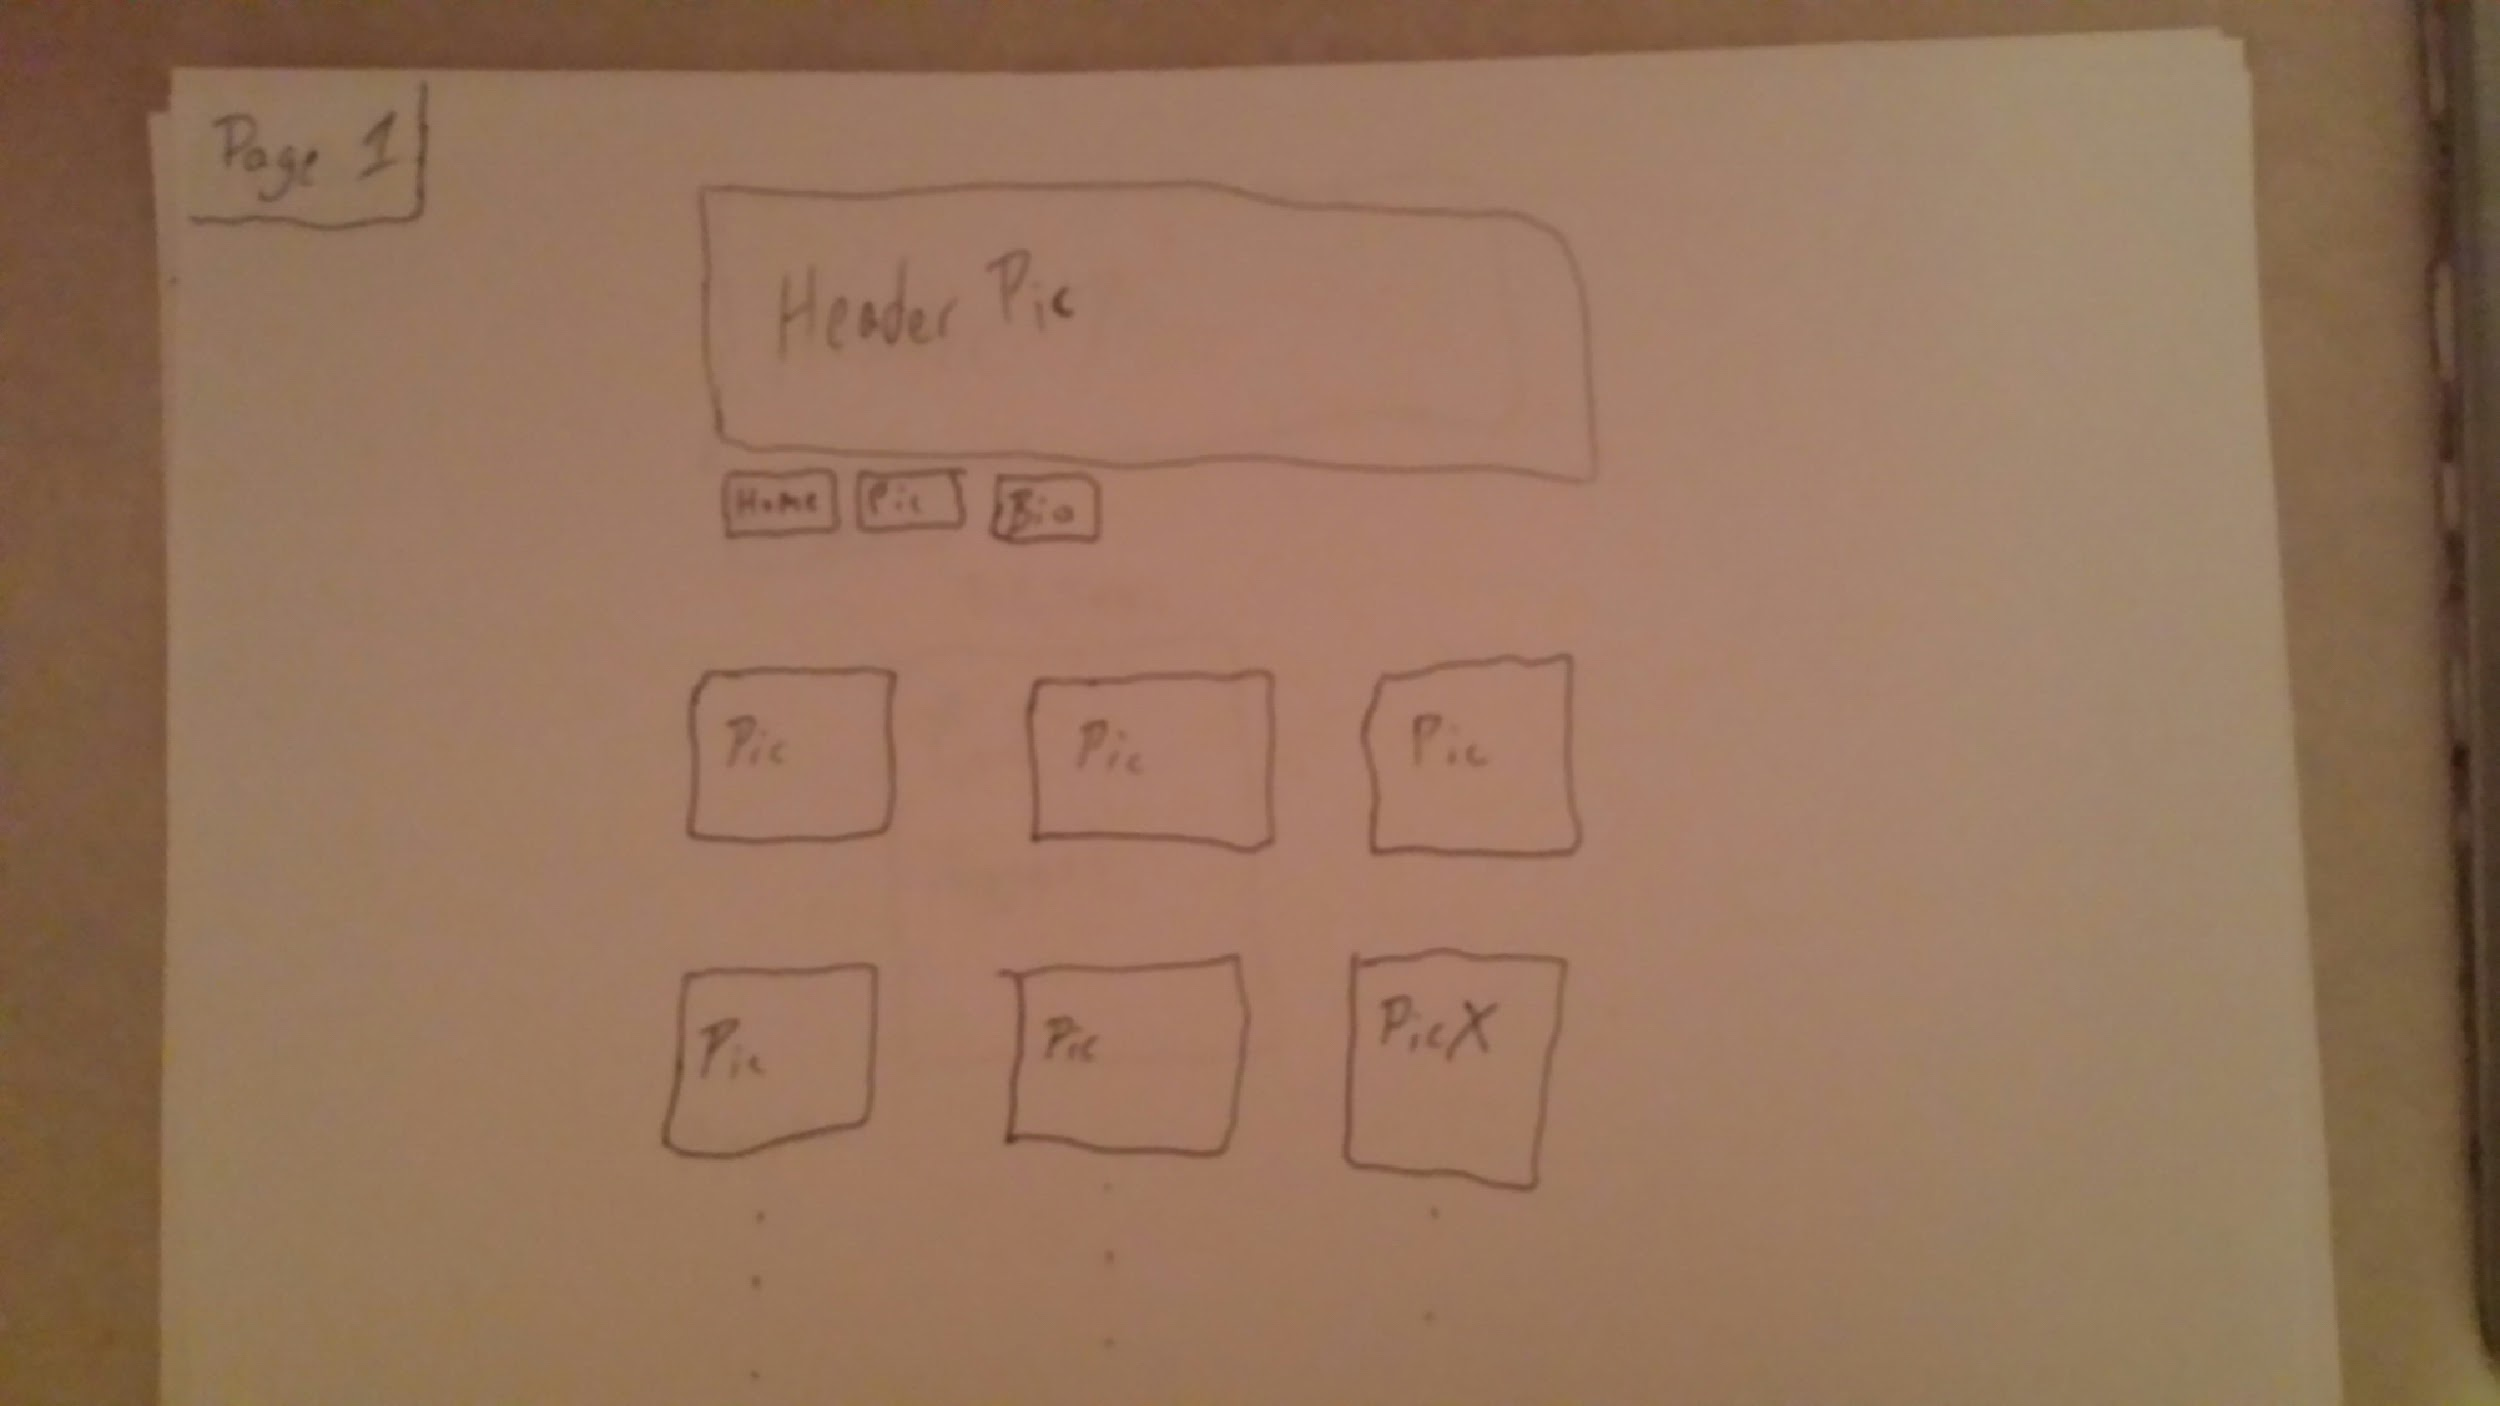 Page 1
Header Pic
Home Pic Bio
Pic Pic Pic
Pic Pic PicX